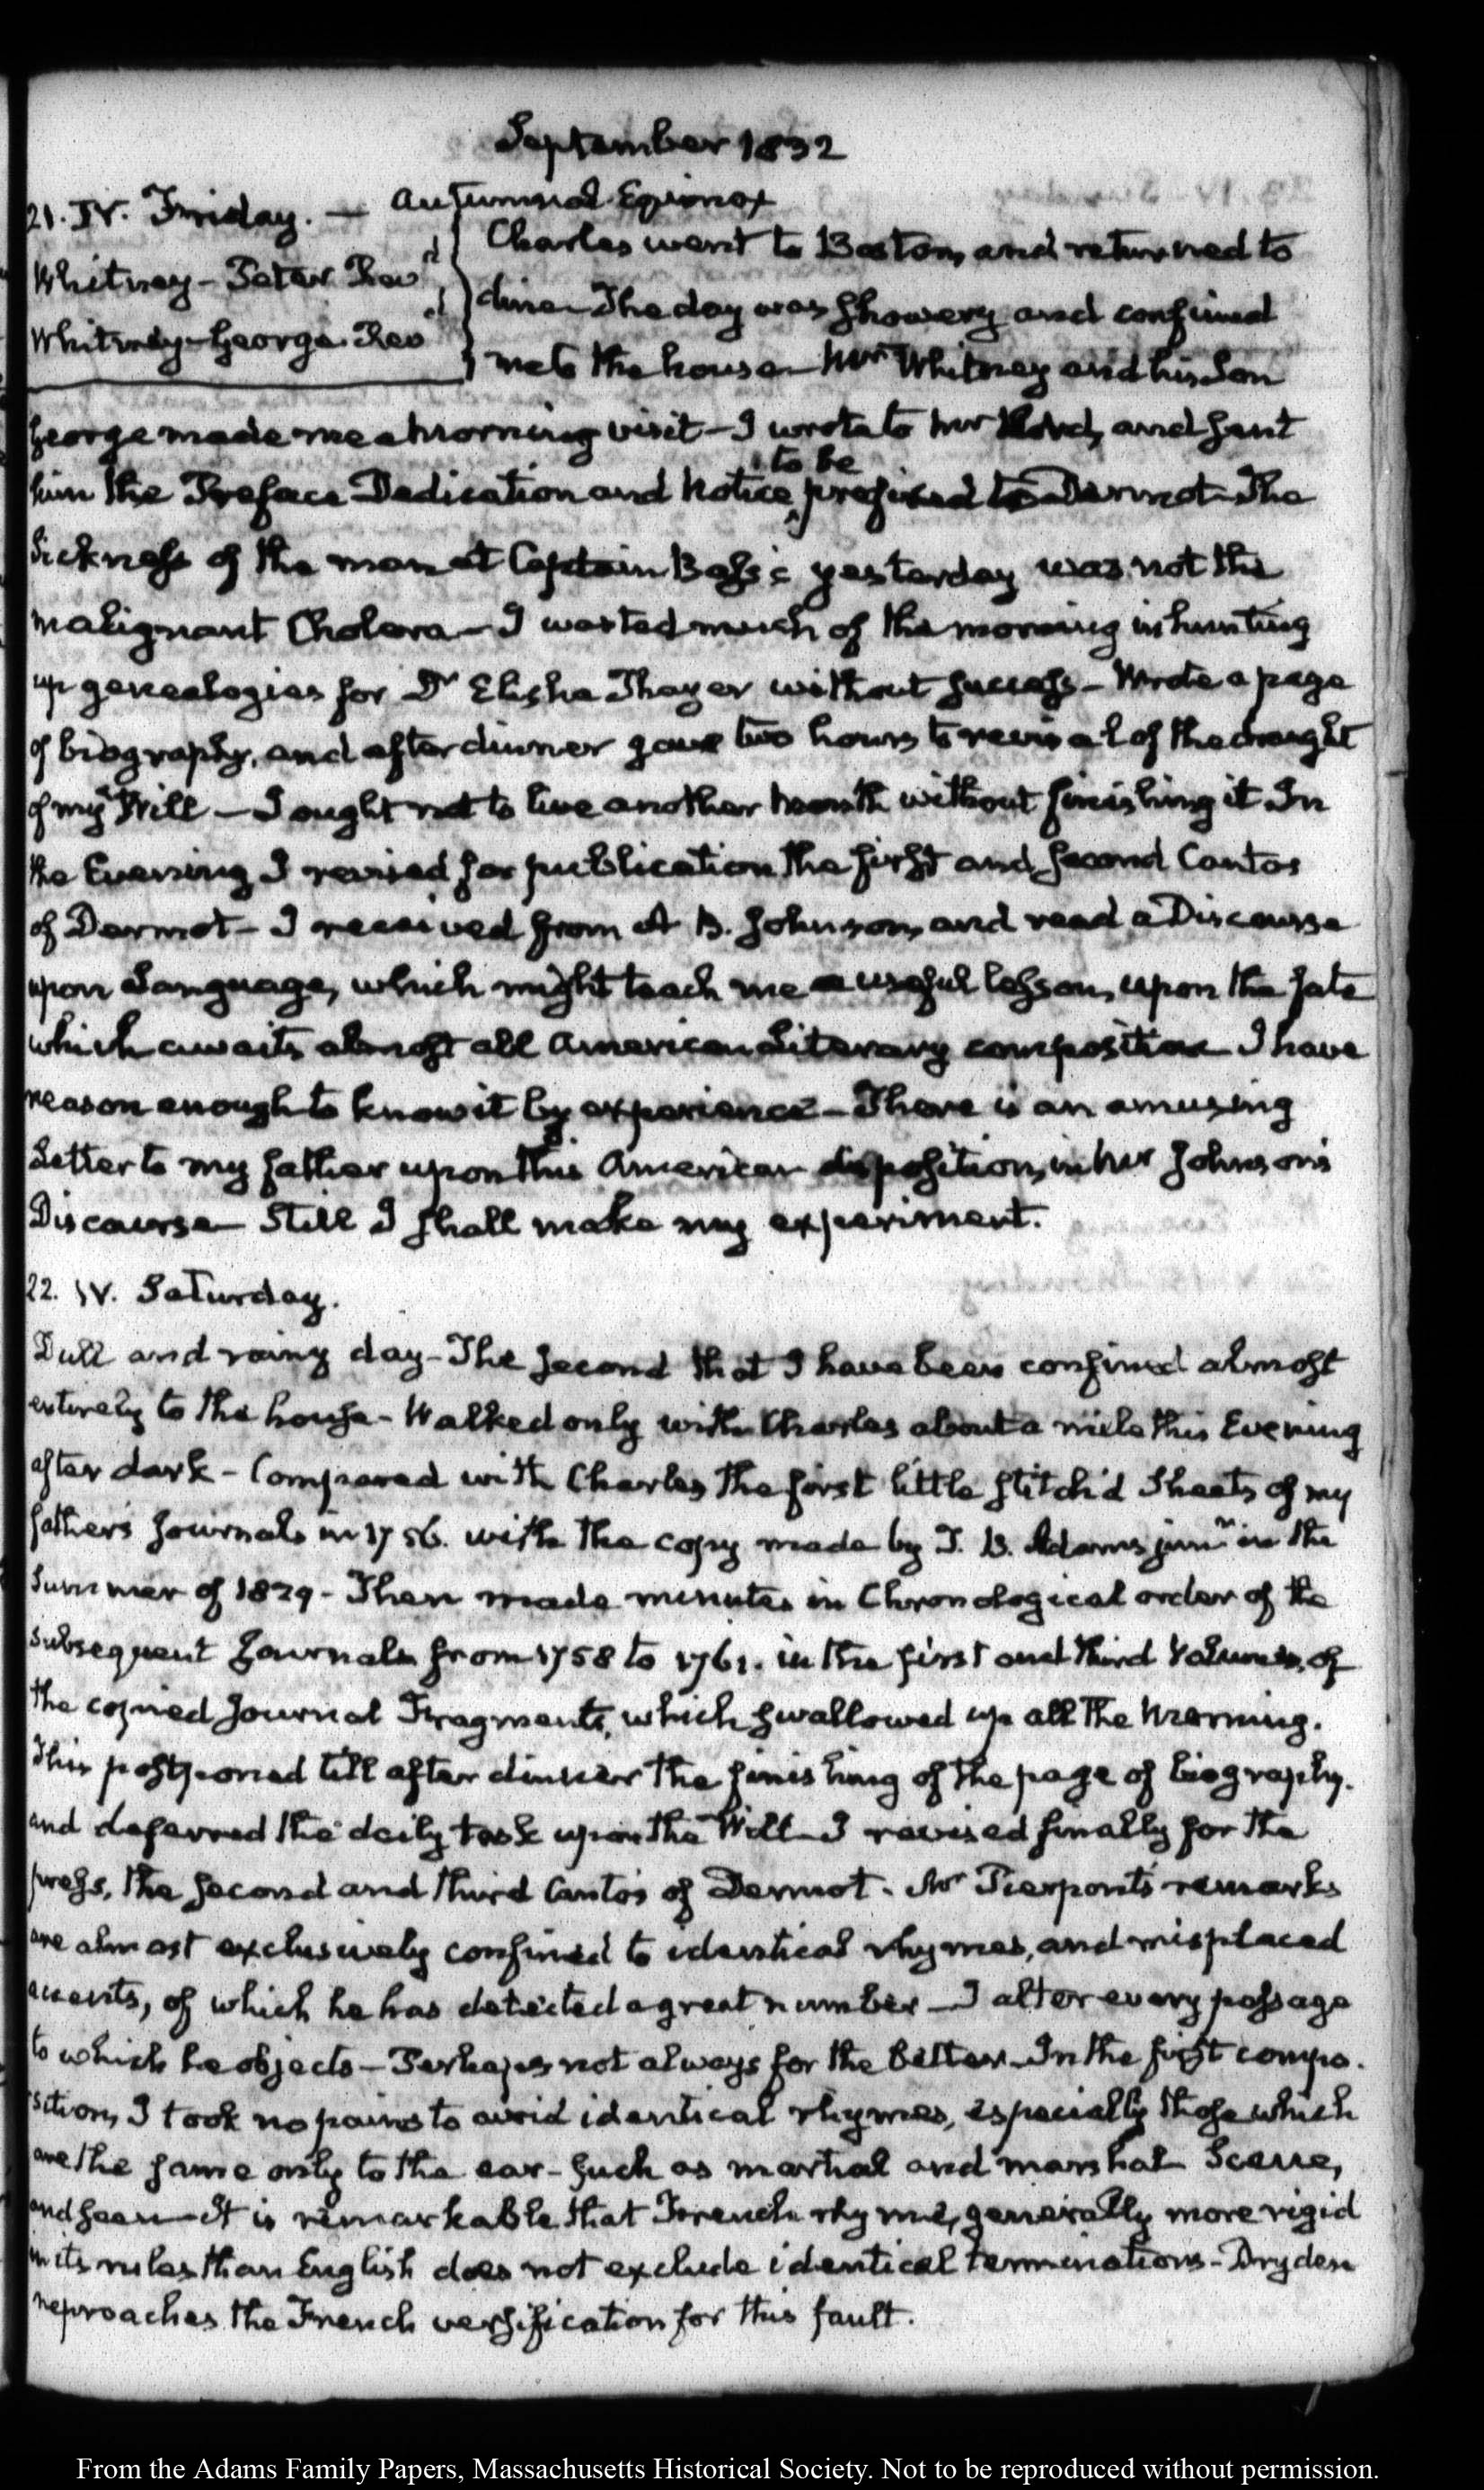 September 1832
21. IV. Friday. — Autumnal Equinox
Whitney - Peter Revd
Whitney - George. Revd
Charles went to Boston, and returned to
dine - The day was showery and confined
me to the house - Mr Whitney and his Son
George made me a morning visit - I wrote to Mr and sent
him the Preface Dedication and Notice to be prefixed to Dermot - The
sickness of the man at Captain Bass's yesterday was not the
malignant Cholera - I wasted much of the morning in hunting
up genealogies for Dr Elisha Thayer without success - Wrote a page
of biography, and after dinner gave two hours to revisal of the draught
of my Will - I ought not to live another month without finishing it In
the Evening I revised for publication the first and second Cantos
of Dermot - I received from A B. Johnson, and read a Discourse
upon Language, which might teach me a useful lesson, upon the fate
which awaits almost all American Literary composition I have
reason enough to know it by experience - There is an amusing
Letter to my father upon this American disposition, in Mr Johnson's
Discourse - Still I shall make my experiment.
22. IV. Saturday.
Dull and rainy day - The second that I have been confined almost
entirely to the house - Walked only with Charles about a mile this Evening
after dark - Compared with Charles the first little stitch'd Sheets of my
father's Journals in 1756. with the copy made by T. B. Adams junr in the
Summer of 1829 - Then made minutes in Chronological order of the
subsequent Journals from 1758 to 1761. in the first and third Volumes, of
the copied Journal Fragments, which swallowed up all the morning.
This postponed till after dinner the finishing of the page of biography.
and deferred the daily task upon the Will - I revised finally for the
press, the second and third Cantos of Dermot. Mr Pierpont's remarks
are almost exclusively confined to identical rhymes, and misplaced
accents, of which he has detected a great number - I alter every passage
to which he objects - Perhaps not always for the better - In the first compo-
sition, I took no pains to avoid identical rhymes, especially those which
are the same only to the ear - such as martial and marshal Scene,
and seen - It is remarkable that French rhyme, generally more rigid
in its rules than English does not exclude identical terminations - Dryden
reproaches the French versification for this fault.
From the Adams Family Papers, Massachusetts Historical Society. Not to be reproduced without permission.